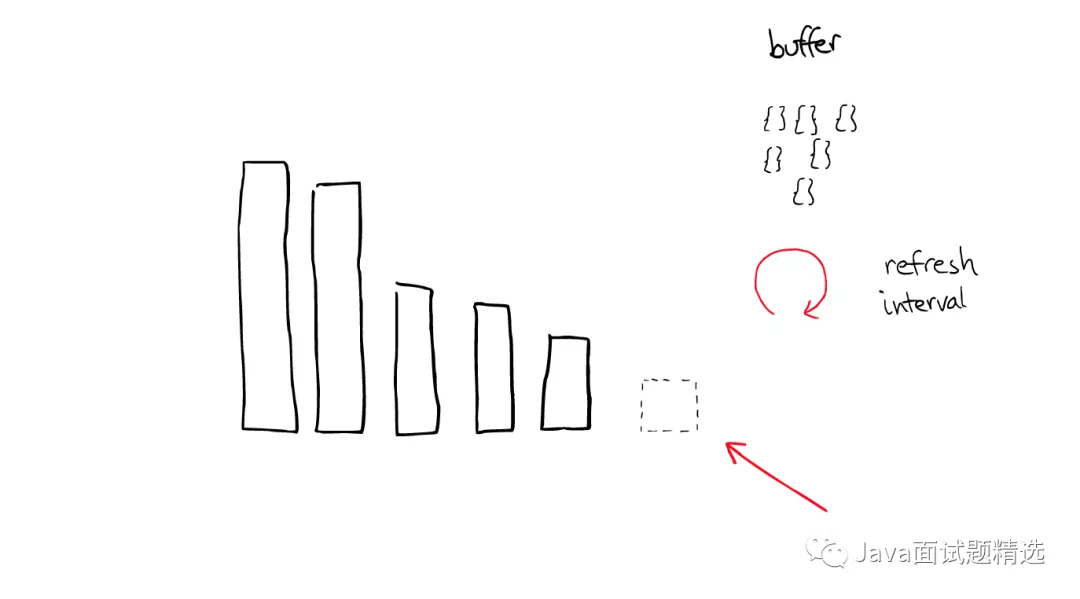 buffer
{} {} {}
{} {}
{}
refresh
interval
Java面试题精选